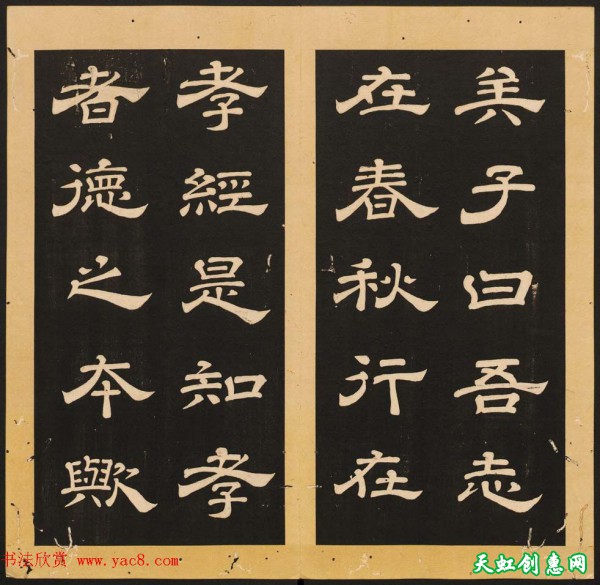 矣子曰吾志
在春秋行在
孝經是知孝
者德之本歟
书法欣赏 www.yac8.com
天虹创惠网